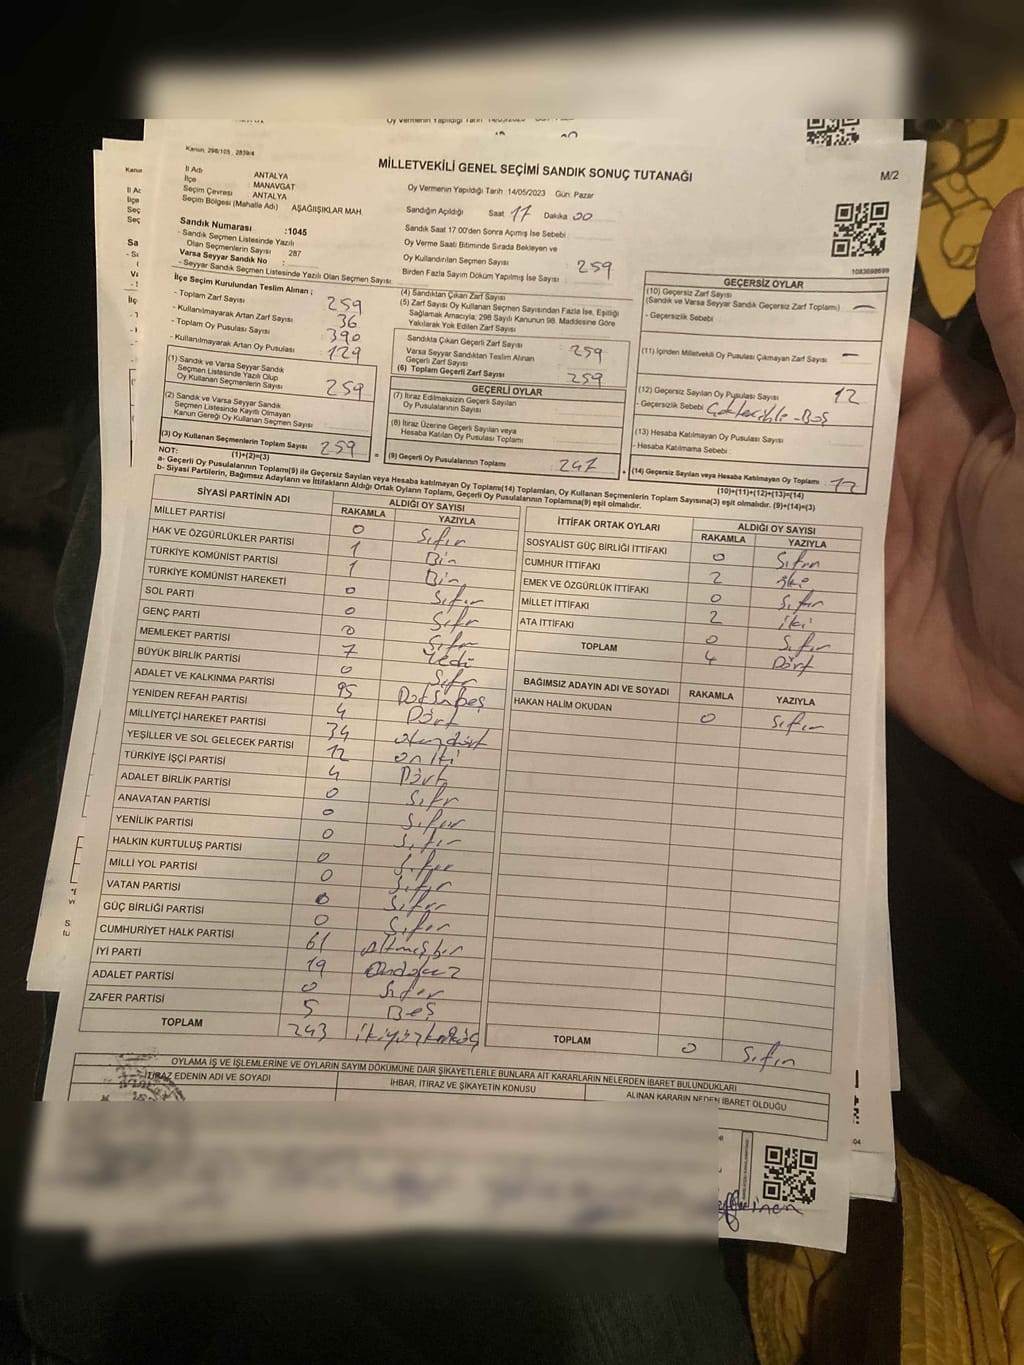 Kanun, 298/105 , 2839/4
MİLLETVEKİLİ GENEL SEÇİMİ SANDIK SONUÇ TUTANAĞI
M/2
İl Adı : ANTALYA
İlçe : MANAVGAT
Seçim Çevresi : ANTALYA
Seçim Bölgesi (Mahalle Adı) : AŞAĞIIŞIKLAR MAH.
Oy Vermenin Yapıldığı Tarih 14/05/2023 Gün: Pazar
Sandığın Açıldığı Saat 17 Dakika 00
Sandık Saat 17 00'den Sonra Açımış İse Sebebi
Oy Verme Saati Bitiminde Sırada Bekleyen ve
Oy Kullandırılan Seçmen Sayısı
Birden Fazla Sayım Döküm Yapılmış İse Sayısı
259
1083698699
Sandık Numarası :1045
- Sandık Seçmen Listesinde Yazılı
Olan Seçmenlerin Sayısı : 287
Varsa Seyyar Sandık No :
- Seyyar Sandık Seçmen Listesinde Yazılı Olan Seçmen Sayısı
İlçe Seçim Kurulundan Teslim Alınan ;
- Toplam Zarf Sayısı 259
- Kullanılmayarak Artan Zarf Sayısı 36
- Toplam Oy Pusulası Sayısı 390
- Kullanılmayarak Artan Oy Pusulası 129
(1) Sandık ve Varsa Seyyar Sandık
Seçmen Listesinde Yazılı Olup
Oy Kullanan Seçmenlerin Sayısı 259
(2) Sandık ve Varsa Seyyar Sandık
Seçmen Listesinde Kayıtlı Olmayan
Kanun Gereği Oy Kullanan Seçmen Sayısı
(3) Oy Kullanan Seçmenlerin Toplam Sayısı 259
(1)+(2)=(3)
(4) Sandıktan Çıkan Zarf Sayısı
(5) Zarf Sayısı Oy Kullanan Seçmen Sayısından Fazla İse, Eşitliği
Sağlamak Amacıyla; 298 Sayılı Kanunun 98. Maddesine Göre
Yakılarak Yok Edilen Zarf Sayısı
Sandıkta Çıkan Geçerli Zarf Sayısı 259
Varsa Seyyar Sandıktan Teslim Alınan
Geçerli Zarf Sayısı
(6) Toplam Geçerli Zarf Sayısı 259
GEÇERLİ OYLAR
(7) İtiraz Edilmeksizin Geçerli Sayılan
Oy Pusulalarının Sayısı
(8) İtiraz Üzerine Geçerli Sayılan veya
Hesaba Katılan Oy Pusulası Toplamı
(9) Geçerli Oy Pusulalarının Toplamı 247
GEÇERSİZ OYLAR
(10) Geçersiz Zarf Sayısı
(Sandık ve Varsa Seyyar Sandık Geçersiz Zarf Toplamı) —
- Geçersizlik Sebebi
(11) İçinden Milletvekili Oy Pusulası Çıkmayan Zarf Sayısı —
(12) Geçersiz Sayılan Oy Pusulası Sayısı 12
- Geçersizlik Sebebi -Boş
(13) Hesaba Katılmayan Oy Pusulası Sayısı
- Hesaba Katılmama Sebebi
(14) Geçersiz Sayılan veya Hesaba Katılmayan Oy Toplamı 12
(10)+(11)+(12)+(13)=(14)
NOT:
a- Geçerli Oy Pusulalarının Toplamı(9) ile Geçersiz Sayılan veya Hesaba katılmayan Oy Toplamı(14) Toplamları, Oy Kullanan Seçmenlerin Toplam Sayısına(3) eşit olmalıdır. (9)+(14)=(3)
b- Siyasi Partilerin, Bağımsız Adayların ve İttifakların Aldığı Ortak Oyların Toplamı, Geçerli Oy Pusulalarının Toplamına(9) eşit olmalıdır.
SİYASİ PARTİNİN ADI ALDIĞI OY SAYISI
RAKAMLA YAZIYLA
MİLLET PARTİSİ 0 Sıfır
HAK VE ÖZGÜRLÜKLER PARTİSİ 1 Bir
TÜRKİYE KOMÜNİST PARTİSİ 1 Bir
TÜRKİYE KOMÜNİST HAREKETİ 0 Sıfır
SOL PARTİ 0 Sıfır
GENÇ PARTİ 0 Sıfır
MEMLEKET PARTİSİ 7 Yedi
BÜYÜK BİRLİK PARTİSİ 0 Sıfır
ADALET VE KALKINMA PARTİSİ 95 Doksanbeş
YENİDEN REFAH PARTİSİ 4 Dört
MİLLİYETÇİ HAREKET PARTİSİ 34 otuzdört
YEŞİLLER VE SOL GELECEK PARTİSİ 12 on iki
TÜRKİYE İŞÇİ PARTİSİ 4 Dört
ADALET BİRLİK PARTİSİ 0 Sıfır
ANAVATAN PARTİSİ 0 Sıfır
YENİLİK PARTİSİ 0 Sıfır
HALKIN KURTULUŞ PARTİSİ 0 Sıfır
MİLLİ YOL PARTİSİ 0 Sıfır
VATAN PARTİSİ 0 Sıfır
GÜÇ BİRLİĞİ PARTİSİ 0 Sıfır
CUMHURİYET HALK PARTİSİ 61 Altmışbir
İYİ PARTİ 19 Ondokuz
ADALET PARTİSİ 0 Sıfır
ZAFER PARTİSİ 5 Beş
TOPLAM 243 ikiyüzkırküç
İTTİFAK ORTAK OYLARI ALDIĞI OY SAYISI
RAKAMLA YAZIYLA
SOSYALİST GÜÇ BİRLİĞİ İTTİFAKI 0 Sıfır
CUMHUR İTTİFAKI 2 iki
EMEK VE ÖZGÜRLÜK İTTİFAKI 0 Sıfır
MİLLET İTTİFAKI 2 iki
ATA İTTİFAKI 0 Sıfır
TOPLAM 4 Dört
BAĞIMSIZ ADAYIN ADI VE SOYADI RAKAMLA YAZIYLA
HAKAN HALİM OKUDAN 0 Sıfır
TOPLAM 0 Sıfır
OYLAMA İŞ VE İŞLEMLERİNE VE OYLARIN SAYIM DÖKÜMÜNE DAİR ŞİKAYETLERLE BUNLARA AİT KARARLARIN NELERDEN İBARET BULUNDUKLARI
İTİRAZ EDENİN ADI VE SOYADI
İHBAR, İTİRAZ VE ŞİKAYETİN KONUSU
ALINAN KARARIN NEDEN İBARET OLDUĞU